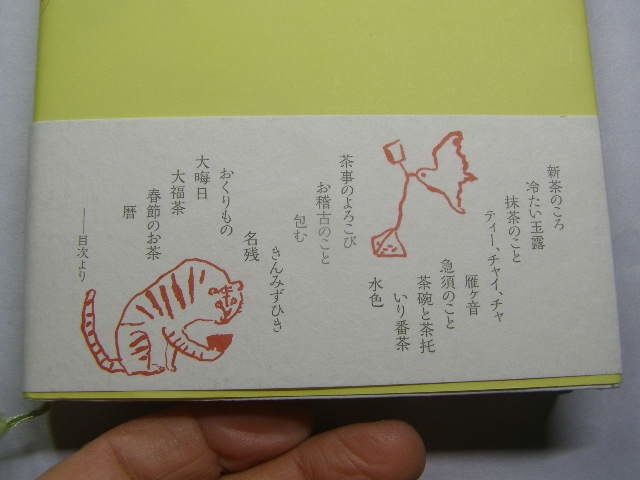 新茶のころ
冷たい玉露
抹茶のこと
ティー、チャイ、チャ
雁ヶ音
急須のこと
茶碗と茶托
いり番茶
水色
茶事のよろこび
お稽古のこと
包む
きんみずひき
名残
おくりもの
大晦日
大福茶
春節のお茶
暦
──目次より